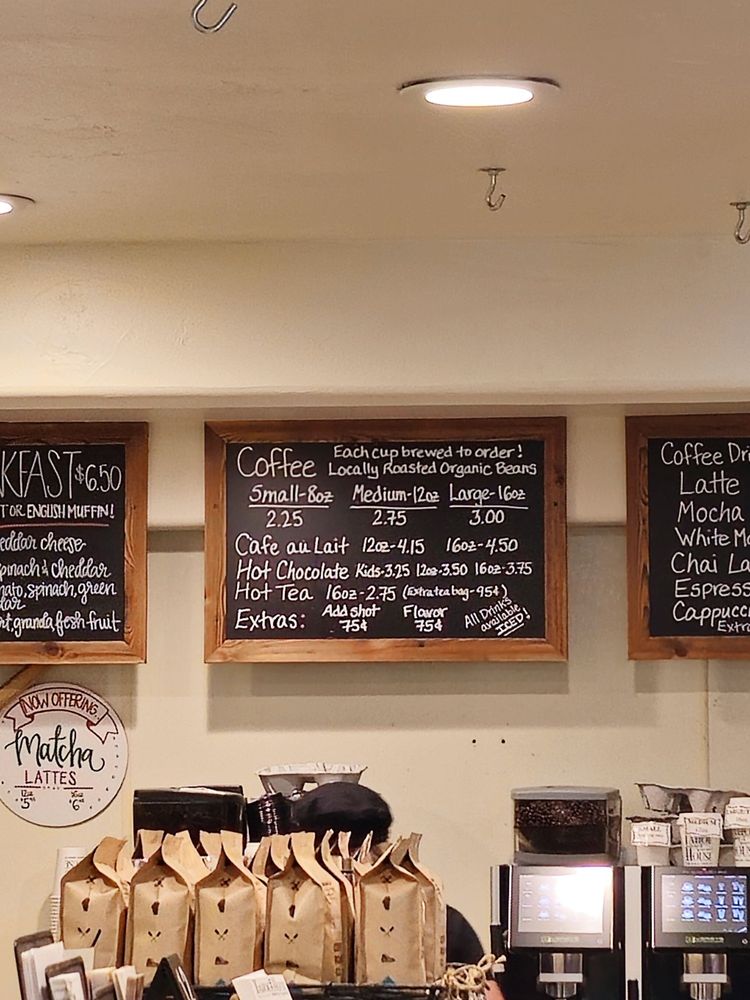 KFAST $6.50
T OR ENGLISH MUFFIN!
eddar cheese
pinach & cheddar
nato, spinach, green
dar
rt, granola, fresh fruit
Coffee Each cup brewed to order!
Locally Roasted Organic Beans
Small-8oz Medium-12oz Large-16oz
2.25 2.75 3.00
Cafe au Lait 12oz-4.15 16oz-4.50
Hot Chocolate Kids-3.25 12oz-3.50 16oz-3.75
Hot Tea 16oz-2.75 (Extra tea bag-95¢)
Extras: Add shot 75¢ Flavor 75¢
All Drinks available ICED!
Coffee Dri
Latte
Mocha
White Mo
Chai La
Espress
Cappucci
Extra
NOW OFFERING
Matcha
LATTES
12oz 16oz
SMALL
MEDIUM
HOUSE